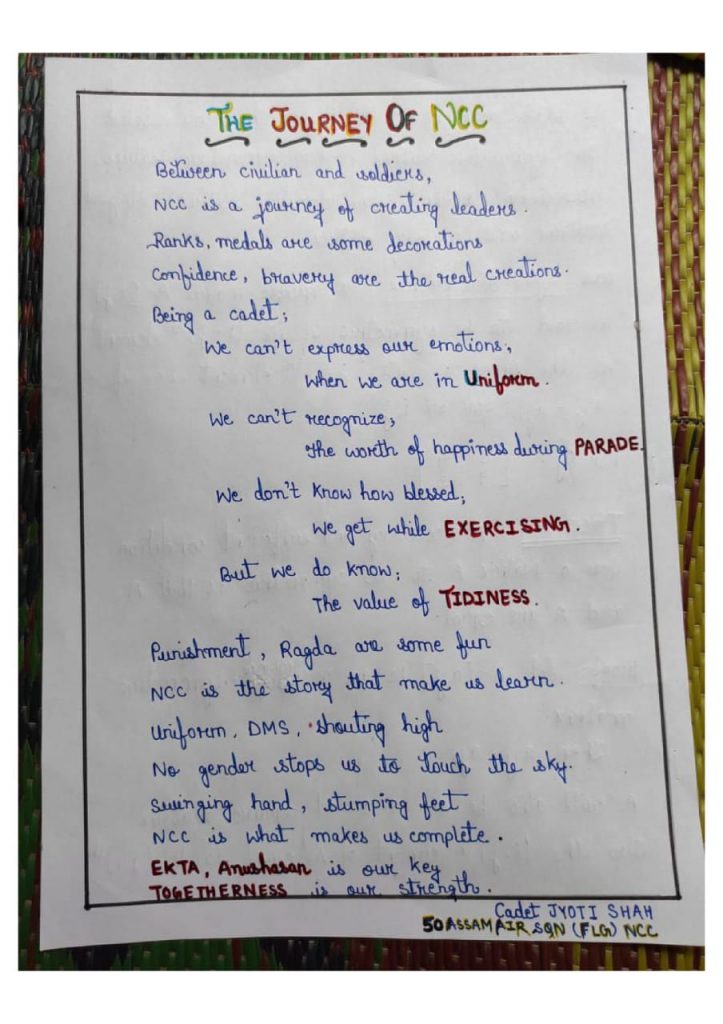 THE JOURNEY OF NCC
Between civilian and soldiers,
NCC is a journey of creating leaders.
Ranks, medals are some decorations
Confidence, bravery are the real creations.
Being a cadet;
We can't express our emotions;
When we are in Uniform.
We can't recognize;
The worth of happiness during PARADE.
We don't know how blessed;
We get while EXERCISING.
But we do know;
The value of TIDINESS.
Punishment, Ragda are some fun
NCC is the story that make us learn.
Uniform, DMS, shouting high
No gender stops us to touch the sky.
Swinging hand, stumping feet
NCC is what makes us complete.
EKTA, Anushasan is our key
TOGETHERNESS is our strength.
Cadet JYOTI SHAH
50 ASSAM AIR SQN (FLG) NCC